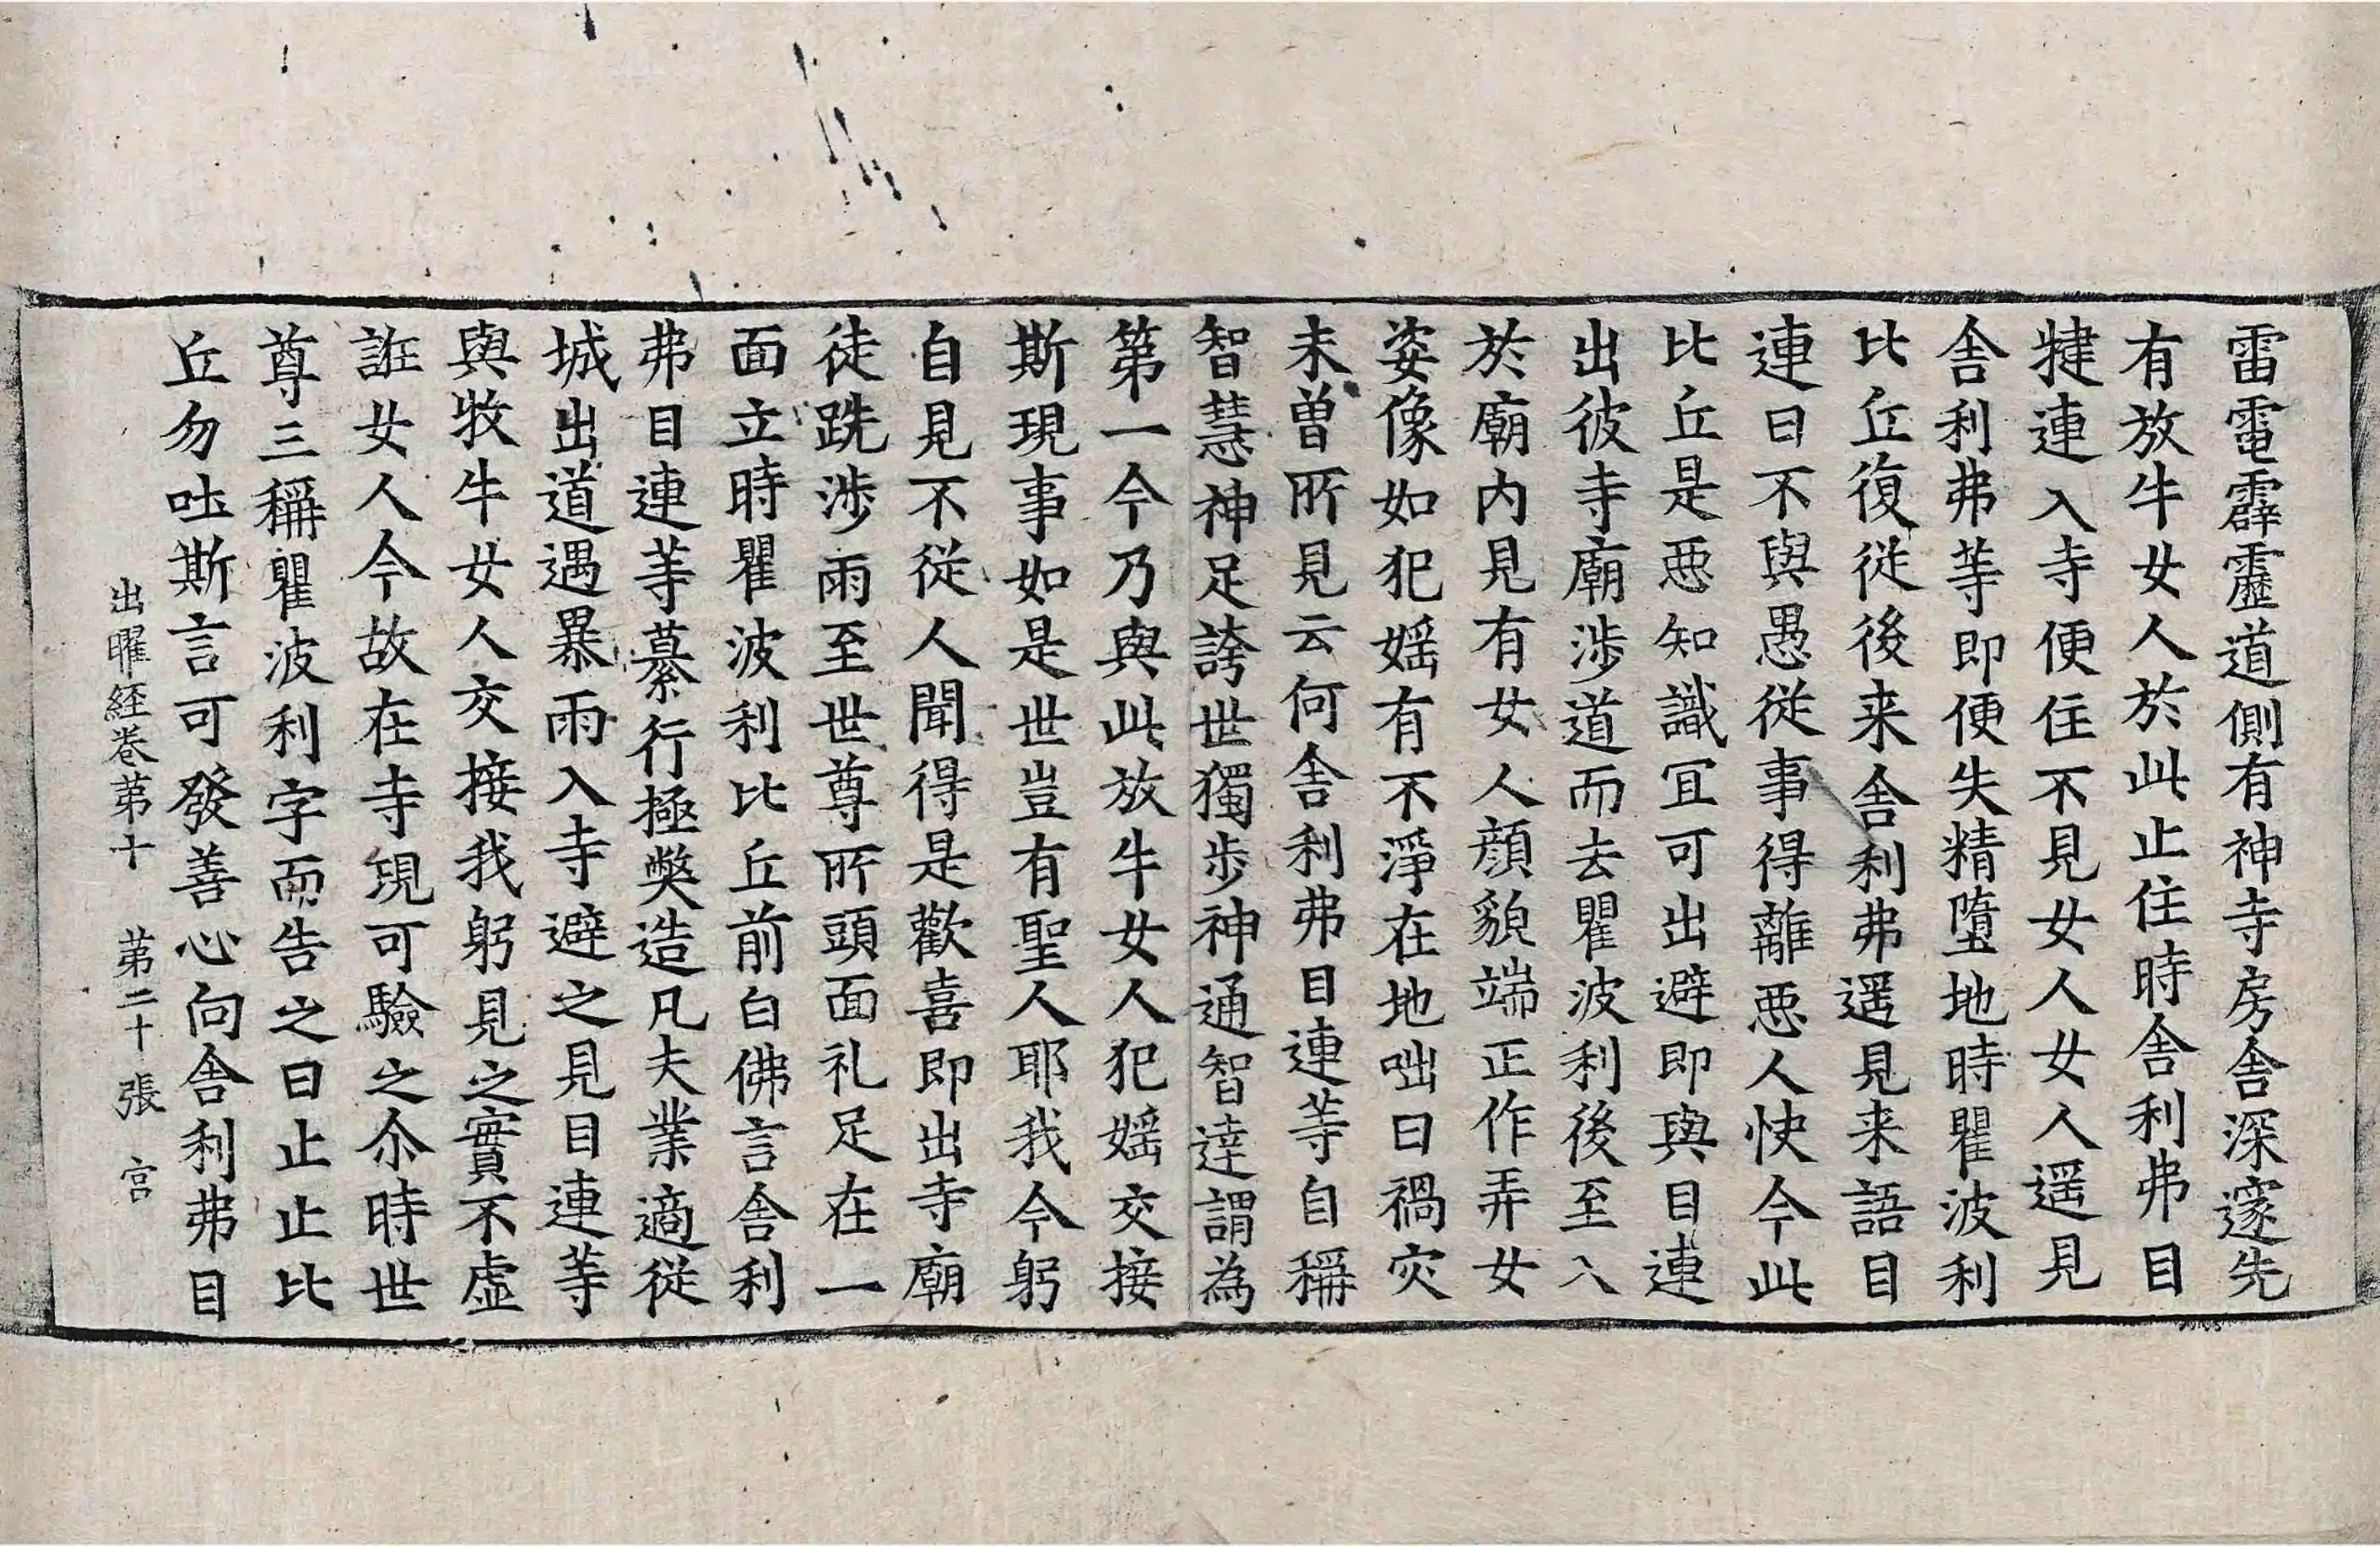 雷電霹靂道側有神寺房舍深邃先
有放牛女人於此止住時舍利弗目
揵連入寺便住不見女人女人遥見
舍利弗等即便失精墮地時瞿波利
比丘復從後来舍利弗遥見来語目
連曰不與愚從事得離惡人快今此
比丘是惡知識冝可出避即與目連
出彼寺廟涉道而去瞿波利後至入
於廟内見有女人顔貌端正作弄女
姿像如犯婬有不淨在地咄曰禍灾
未曽所見云何舍利弗目連等自稱
智慧神足誇世獨步神通智達謂為
第一今乃與此放牛女人犯婬交接
斯現事如是世豈有聖人耶我今躬
自見不從人聞得是歡喜即出寺廟
徒跣涉雨至世尊所頭面礼足在一
面立時瞿波利比丘前白佛言舍利
弗目連等慕行極弊造凡夫業適從
城出道遇暴雨入寺避之見目連等
與牧牛女人交接我躬見之實不虛
誑女人今故在寺現可驗之尒時世
尊三稱瞿波利字而告之曰止止比
丘勿吐斯言可發善心向舍利弗目
出曜経卷苐十　苐二十張　宫